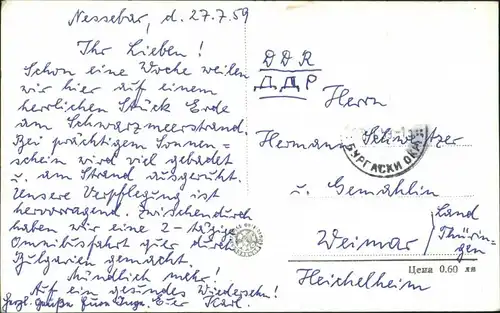 Nessebar, d. 27.7.59
Ihr Lieben!
Schon eine Woche weilen
wir hier auf einem
herrlichen Stück Erde
am Schwarzmeerstrand.
Bei prächtigem Sonnen=
schein wird viel gebadet
u. am Strand ausgeruht.
Unsere Verpflegung ist
hervorragend. Zwischendurch
haben wir eine 2-tägige
Omnibusfahrt quer durch
Bulgarien gemacht.
Mündlich mehr!
Auf ein gesundes Wiedersehn!
Herzl. Grüße Eure Inge. Euer Karl.
DDR
ДДР
Herrn
Hermann Schweitzer
БУРГАСКИ ОКР
u. Gemahlin
Weimar / Land
Thürin-
gen
Цена 0.60 лв
Heichelheim